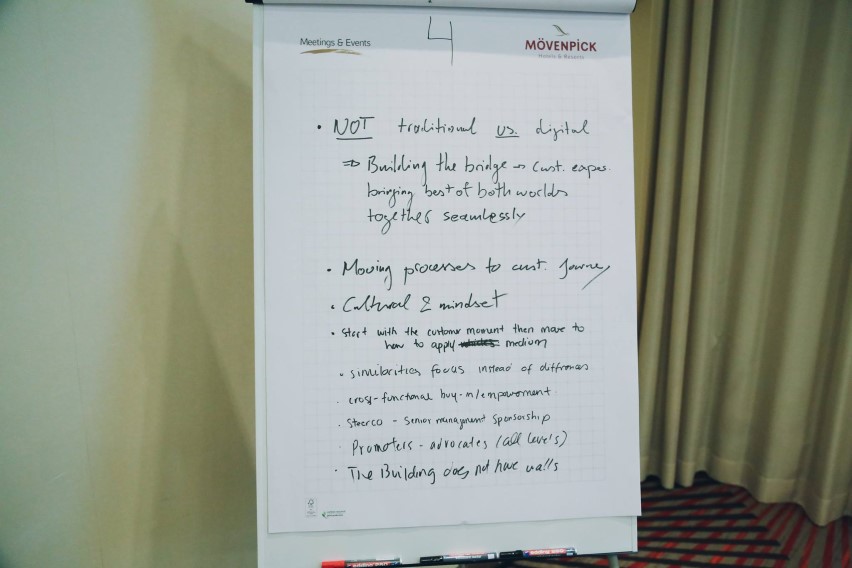 Meetings & Events
4
MÖVENPICK
Hotels & Resorts
• NOT traditional vs. digital
⇒ Building the bridge → cust. exper.
bringing best of both worlds
together seamlessly
• Moving processes to cust. Journey
• Cultural & mindset
• start with the customer moment then move to
how to apply medium
• similarities focus instead of differences
• cross-functional buy-in/empowerment
• Steerco - Senior managment sponsorship
• Promoters - advocates (all level's)
• The Building does not have walls